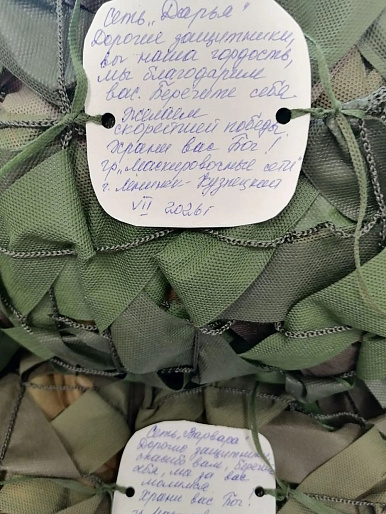 Сеть „Дарья"
Дорогие защитники,
вы наша гордость,
мы благодарим
вас. Берегите себя
Желаем
скорейшей победы.
Храни вас Бог!
гр„Маскировочные сети"
г. Ленинск-Кузнецкий
VII 2026 г
Сеть „Варвара"
Дорогие защитники
спасибо вам, береги
себя, мы за вас
молимся
Храни вас Бог!